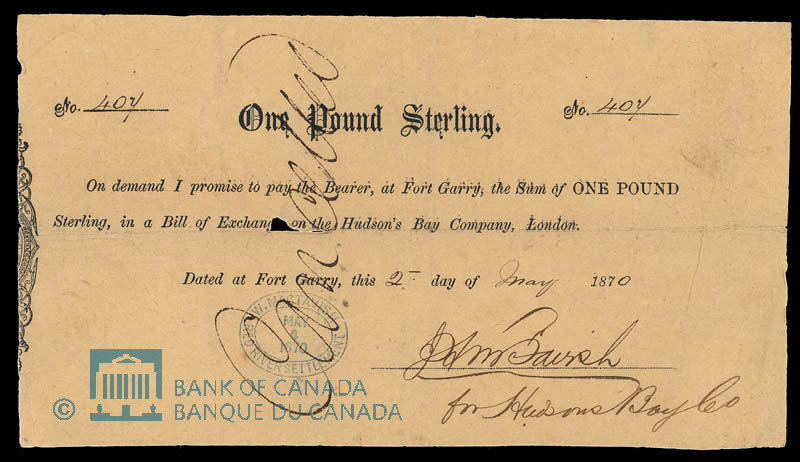 No. 407 No. 407
One Pound Sterling.
On demand I promise to pay the Bearer, at Fort Garry, the Sum of ONE POUND
Sterling, in a Bill of Exchange on the Hudson's Bay Company, London.
Dated at Fort Garry, this 2 day of May 1870
Cancelled
W. MACTAVISH
MAY
4
1870
RED RIVER SETTLEMENT
for Hudsons Bay Co
© BANK OF CANADA
BANQUE DU CANADA